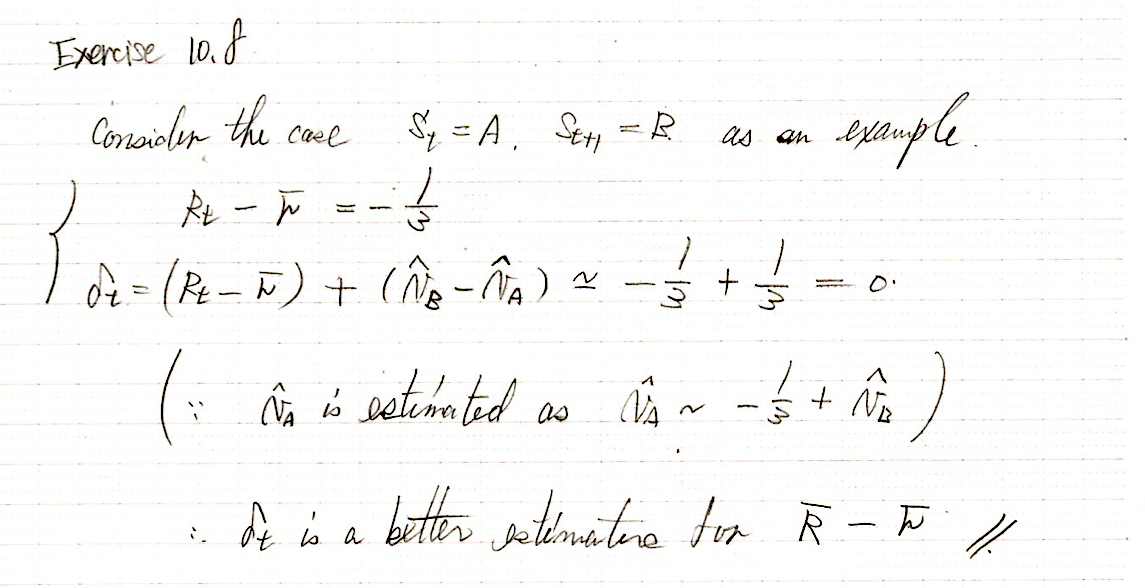 Exercise 10.8
Consider the case S_t = A, S_{t+1} = B as an example.
R_t - r̄ = -1/3
δ_t = (R_t - r̄) + (v̂_B - v̂_A) ≃ -1/3 + 1/3 = 0.
(∵ v̂_A is estimated as v̂_A ~ -1/3 + v̂_B)
∴ δ_t is a better estimative for R̄ - r̄ //.